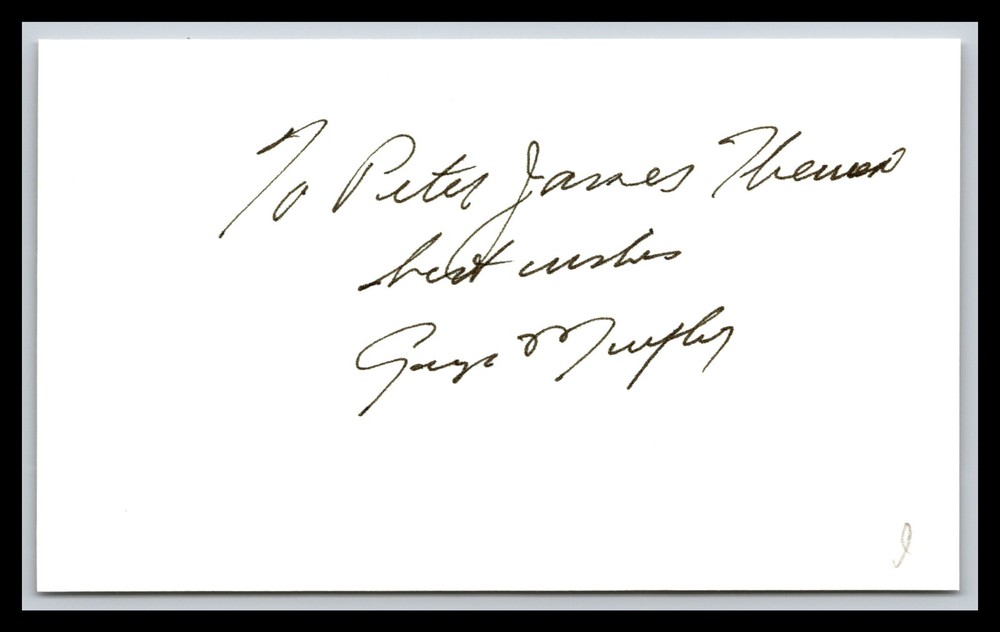 To Peter James
best wishes
George Murphy